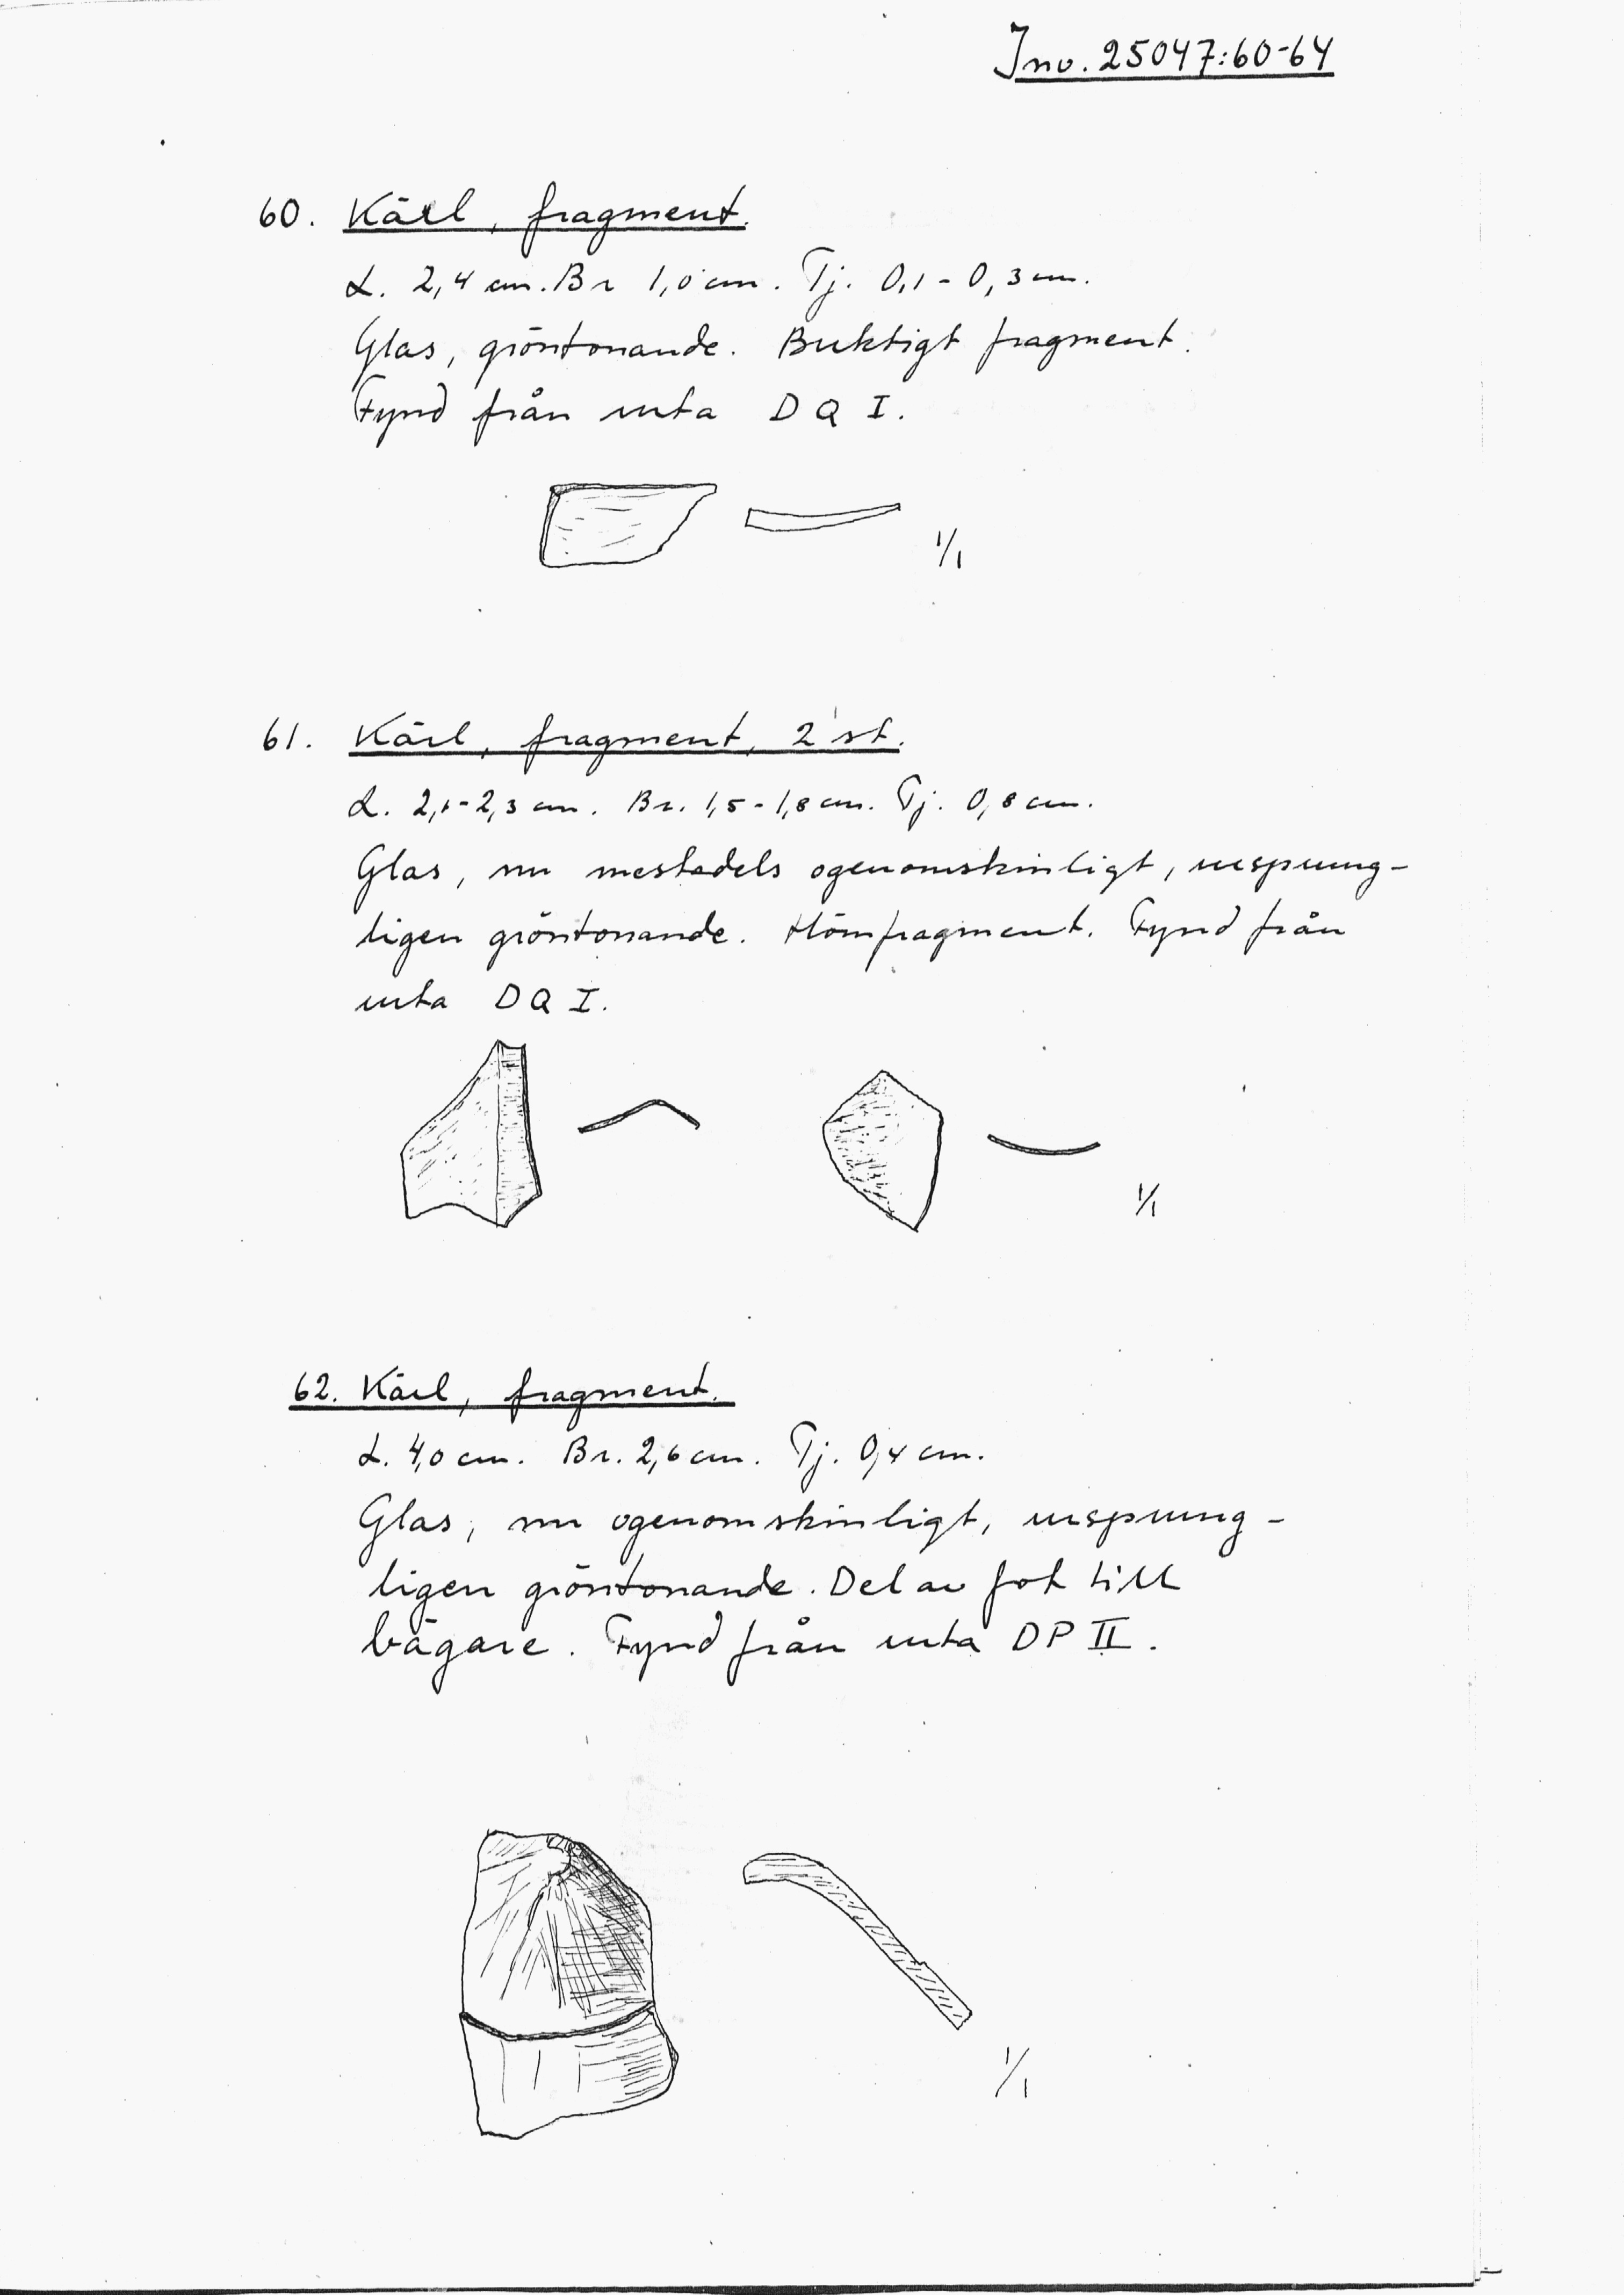 Inv. 25047:60-64
60. Kärl, fragment.
L. 2,4 cm. Br 1,0 cm. Tj. 0,1-0,3 cm.
Glas, gröntonande. Buktigt fragment.
Fynd från ruta DQ I.
1/1
61. Kärl, fragment, 2 st.
L. 2,1-2,3 cm. Br. 1,5-1,8 cm. Tj. 0,8 cm.
Glas, nu mestadels ogenomskinligt, ursprung-
ligen gröntonande. Hörnfragment. Fynd från
ruta DQ I.
1/1
62. Kärl, fragment.
L. 4,0 cm. Br. 2,6 cm. Tj. 0,4 cm.
Glas, nu ogenomskinligt, ursprung-
ligen gröntonande. Del av fot till
bägare. Fynd från ruta DP II.
1/1